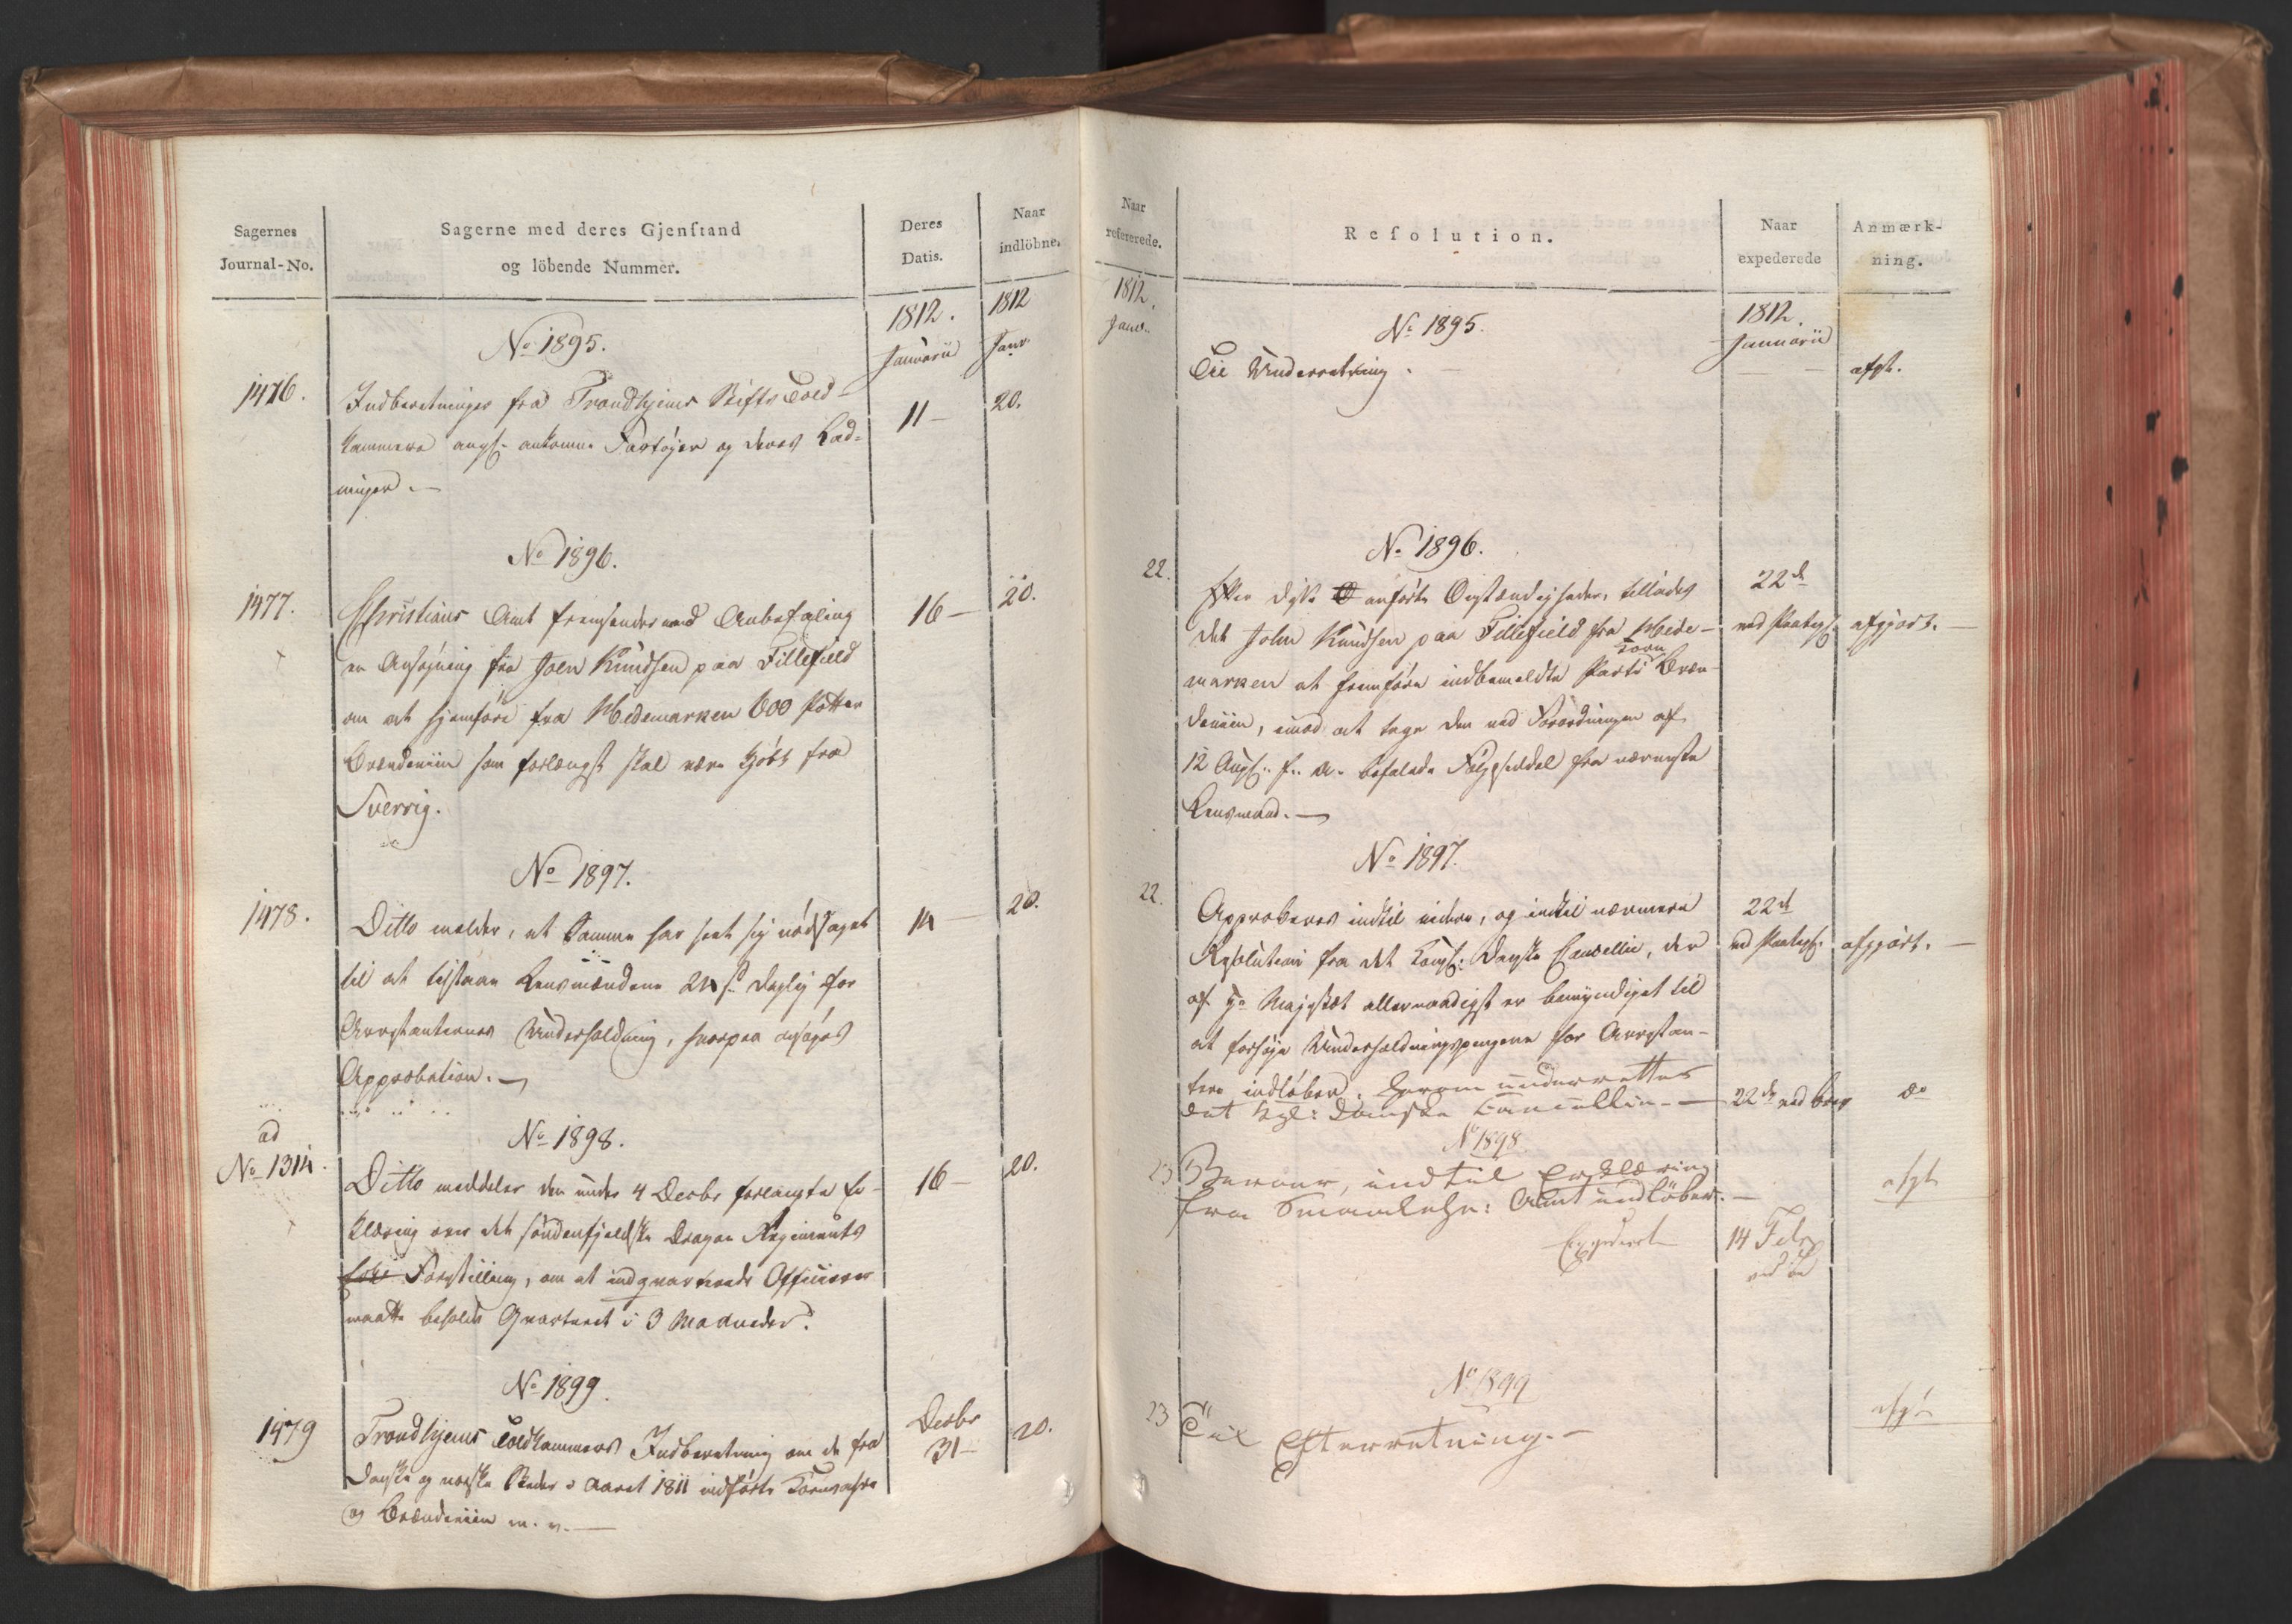 Sagernes
Journal-No.
Sagerne med deres Gjenstand
og löbende Nummer.
Deres
Datis.
Naar
indlöbne.
1812.
Januarii
1812
Janr.
No 1895.
1476.
Indberetninger fra Trondhjems Stifts Told-
kammere angl. ankomne Fartøjer og deres Lad-
ninger.—
11—
20.
No 1896.
1477.
Christians Amt fremsender med Anbefaling
en Ansøgning fra John Knudsen paa Fillefield
om at hjemføre fra Hedemarken 600 Potter
Brændeviin som forlængst skal være kjøbt fra
Sverrig.
16—
20.
No 1897.
1478.
Ditto melder, at Samme har seet sig nødsaget
til at tilstaae Lensmændene 24 s. daglig for
Arrestanternes Underholdning, hvorpaa ansøges
Approbation.—
14—
20.
No 1898.
ad
No 1314.
Ditto meddeler den under 4 Decbr forlangte Er-
klæring over det söndenfjeldske Dragon Regiments
Forestilling, om at indqvarterede Officierer
maatte beholde Qvarteret i 3 Maaneder.
16—
20.
No 1899.
1479
Trondhjems Toldkammers Indberetning om de fra
danske og norske Stæder i Aaret 1811 indførte Kornvahre
og Brændeviin m. v.—
Decbr
31—
20.
Naar
refererede.
Resolution.
Naar
expederede
Anmærk-
ning.
1812.
Janr.
1812.
Januarii
No 1895.
Til Underretning.—
afgt.
No 1896.
22.
Efter disse anførte Omstændigheder, tillades
det John Knudsen paa Fillefield fra Hede-
marken at hjemføre indbemeldte Partie Korn Bræn-
deviin, imod at tage den ved Forordningen af
12 Augs. f. A. befalede Følgeseddel fra nærmeste
Lensmand.—
22de
ved Paategn.
afgjort.—
No 1897.
22.
Approberes indtil videre, og indtil nærmere
Resolution fra det Kongl. Danske Cancellie, der
af Hs. Majestæt allernaadigst er bemyndiget til
at forhøje Underholdningspengene for Arrestan-
tere indløber. Herom underrettes
det Kgl: Danske Cancellie.—
22d
ved Paategn.
afgjort.—
22de ved Brev
do
No 1898
23
Beroer, indtil Erklæring
fra Smaalehn: Amt indlöber.—
Expederet
14 Febr
ved
afgt
No 1899
23
Til Efterretning.—
afgt